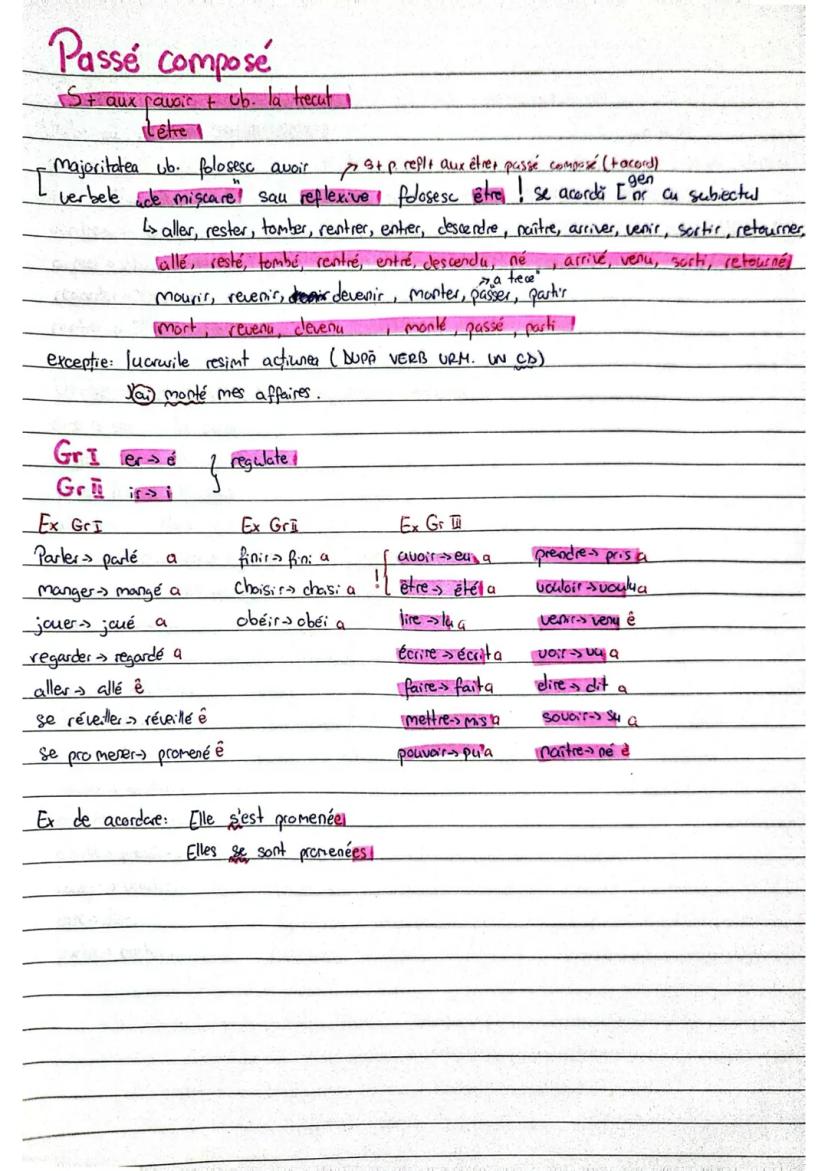 Passé composé
S + aux avoir + vb. la trecut
être
Majoritatea vb. folosesc avoir → S + p. refl + aux être + passé composé (+ acord)
verbele „de mișcare" sau reflexive folosesc être ! se acordă [ gen nr cu subiectul
↳ aller, rester, tomber, rentrer, entrer, descendre, naître, arriver, venir, sortir, retourner,
allé, resté, tombé, rentré, entré, descendu, né, arrivé, venu, sorti, retourné
→ „a trece"
mourir, revenir, devenir, monter, passer, partir
mort, revenu, devenu, monté, passé, parti
excepție: lucrurile resimt acțiunea (DUPĂ VERB URM. UN CD)
J'ai monté mes affaires.
Gr I er → é } regulate
Gr II ir → i
Ex Gr I Ex Gr II Ex Gr III
Parler → parlé a finir → fini a ! [ avoir → eu a prendre → pris a
manger → mangé a choisir → chosi a être → été a vouloir → voulu a
jouer → joué a obéir → obéi a lire → lu a venir → venu ê
regarder → regardé a écrire → écrit a voir → vu a
aller → allé ê faire → fait a dire → dit a
se réveiller → réveillé ê mettre → mis a savoir → su a
se promener → promené ê pouvoir → pu a naître → né ê
Ex de acordare: Elle s'est promenée
Elles se sont promenées